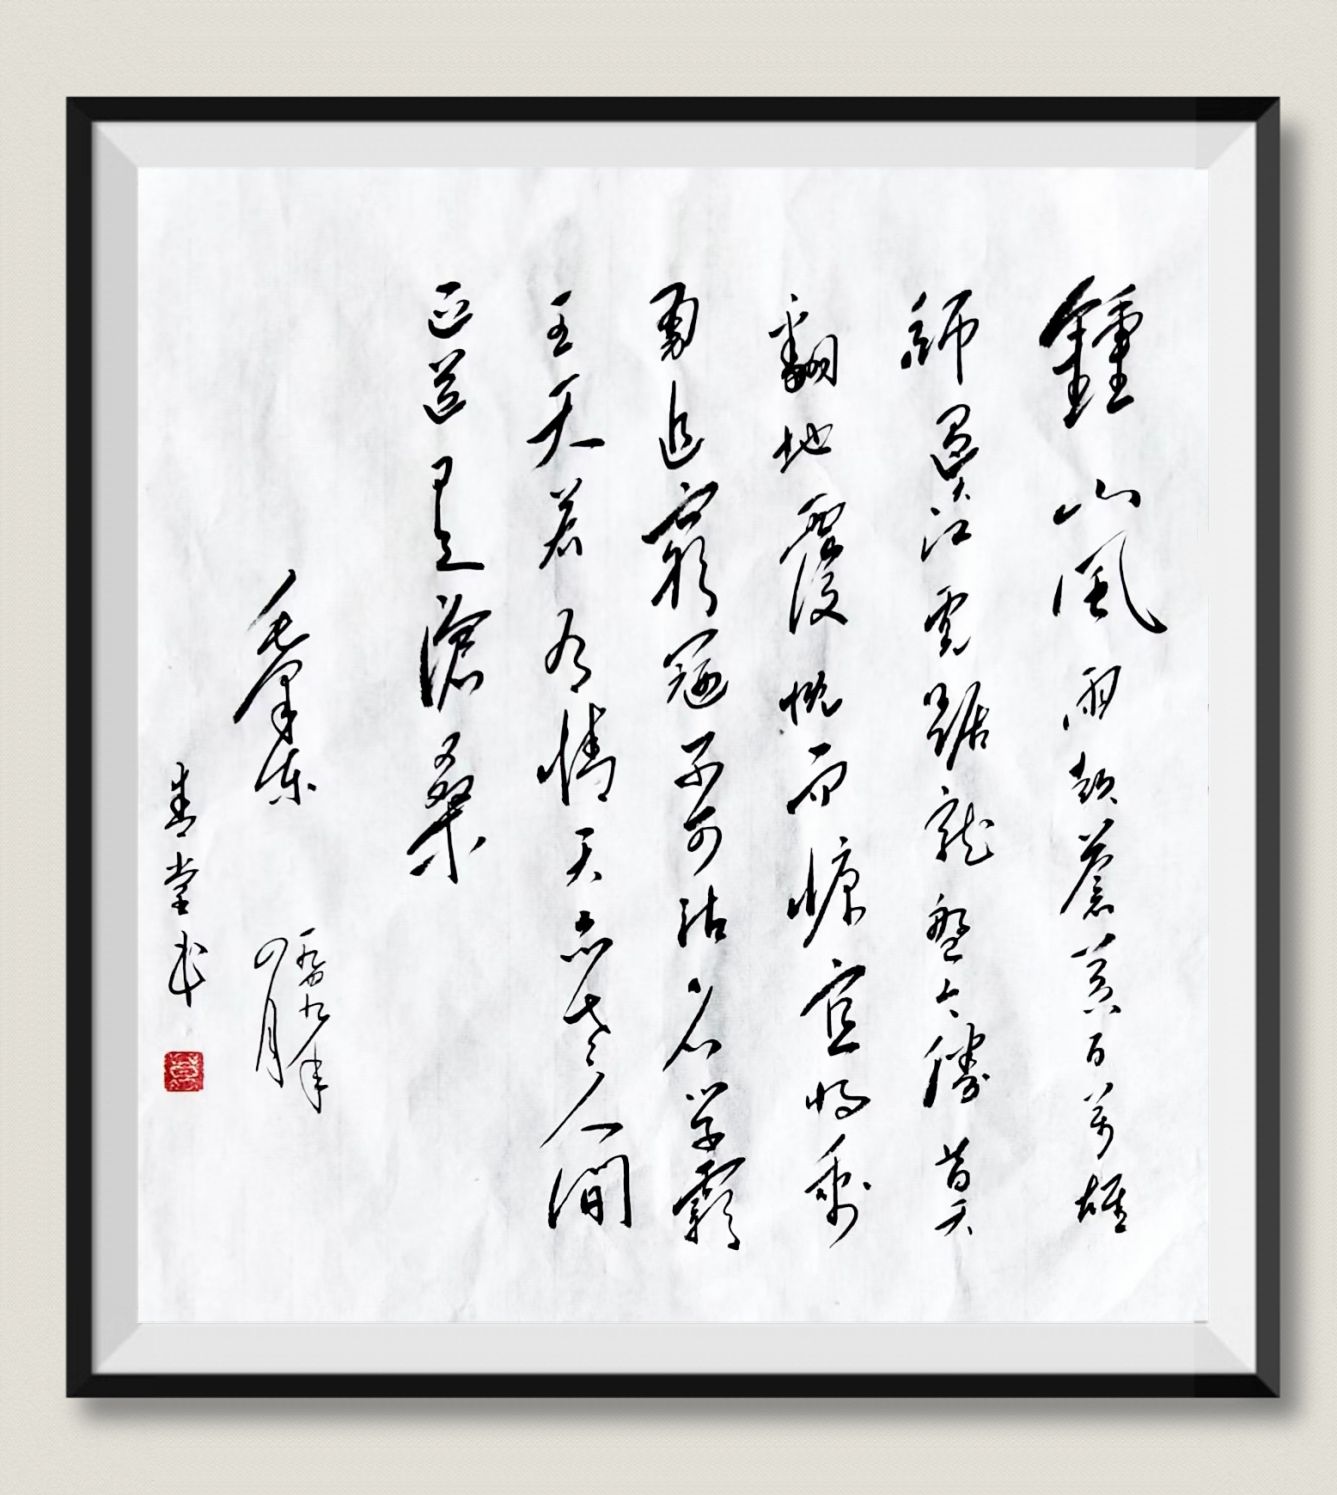 鍾山風雨起蒼黃百萬雄
師過大江虎踞龍盤今勝昔天
翻地覆慨而慷宜將剩
勇追窮寇不可沽名学霸
王天若有情天亦老人間
正道是滄桑
毛澤东
一九四九年
四月
堂书